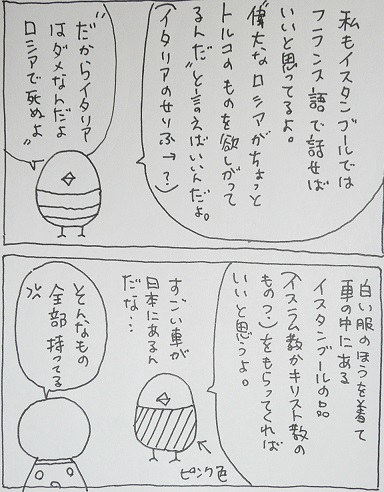 私もイスタンブールでは
フランス語で話せば
いいと思ってるよ。
"偉大なロシアがちょっと
トルコのものを欲しがって
るんだ"と言えばいいんだよ。
(イタリアのせりふ→?)
"だからイタリア
はダメなんだよ
ロシアで死ぬよ"
白い服のほうを着て
車の中にある
イスタンブールの品
(イスラム教かキリスト教の
もの?)をもらってくれば
いいと思うよ。
すごい車が
日本にあるん
だな…
ピンク色
そんなもの
全部持ってる